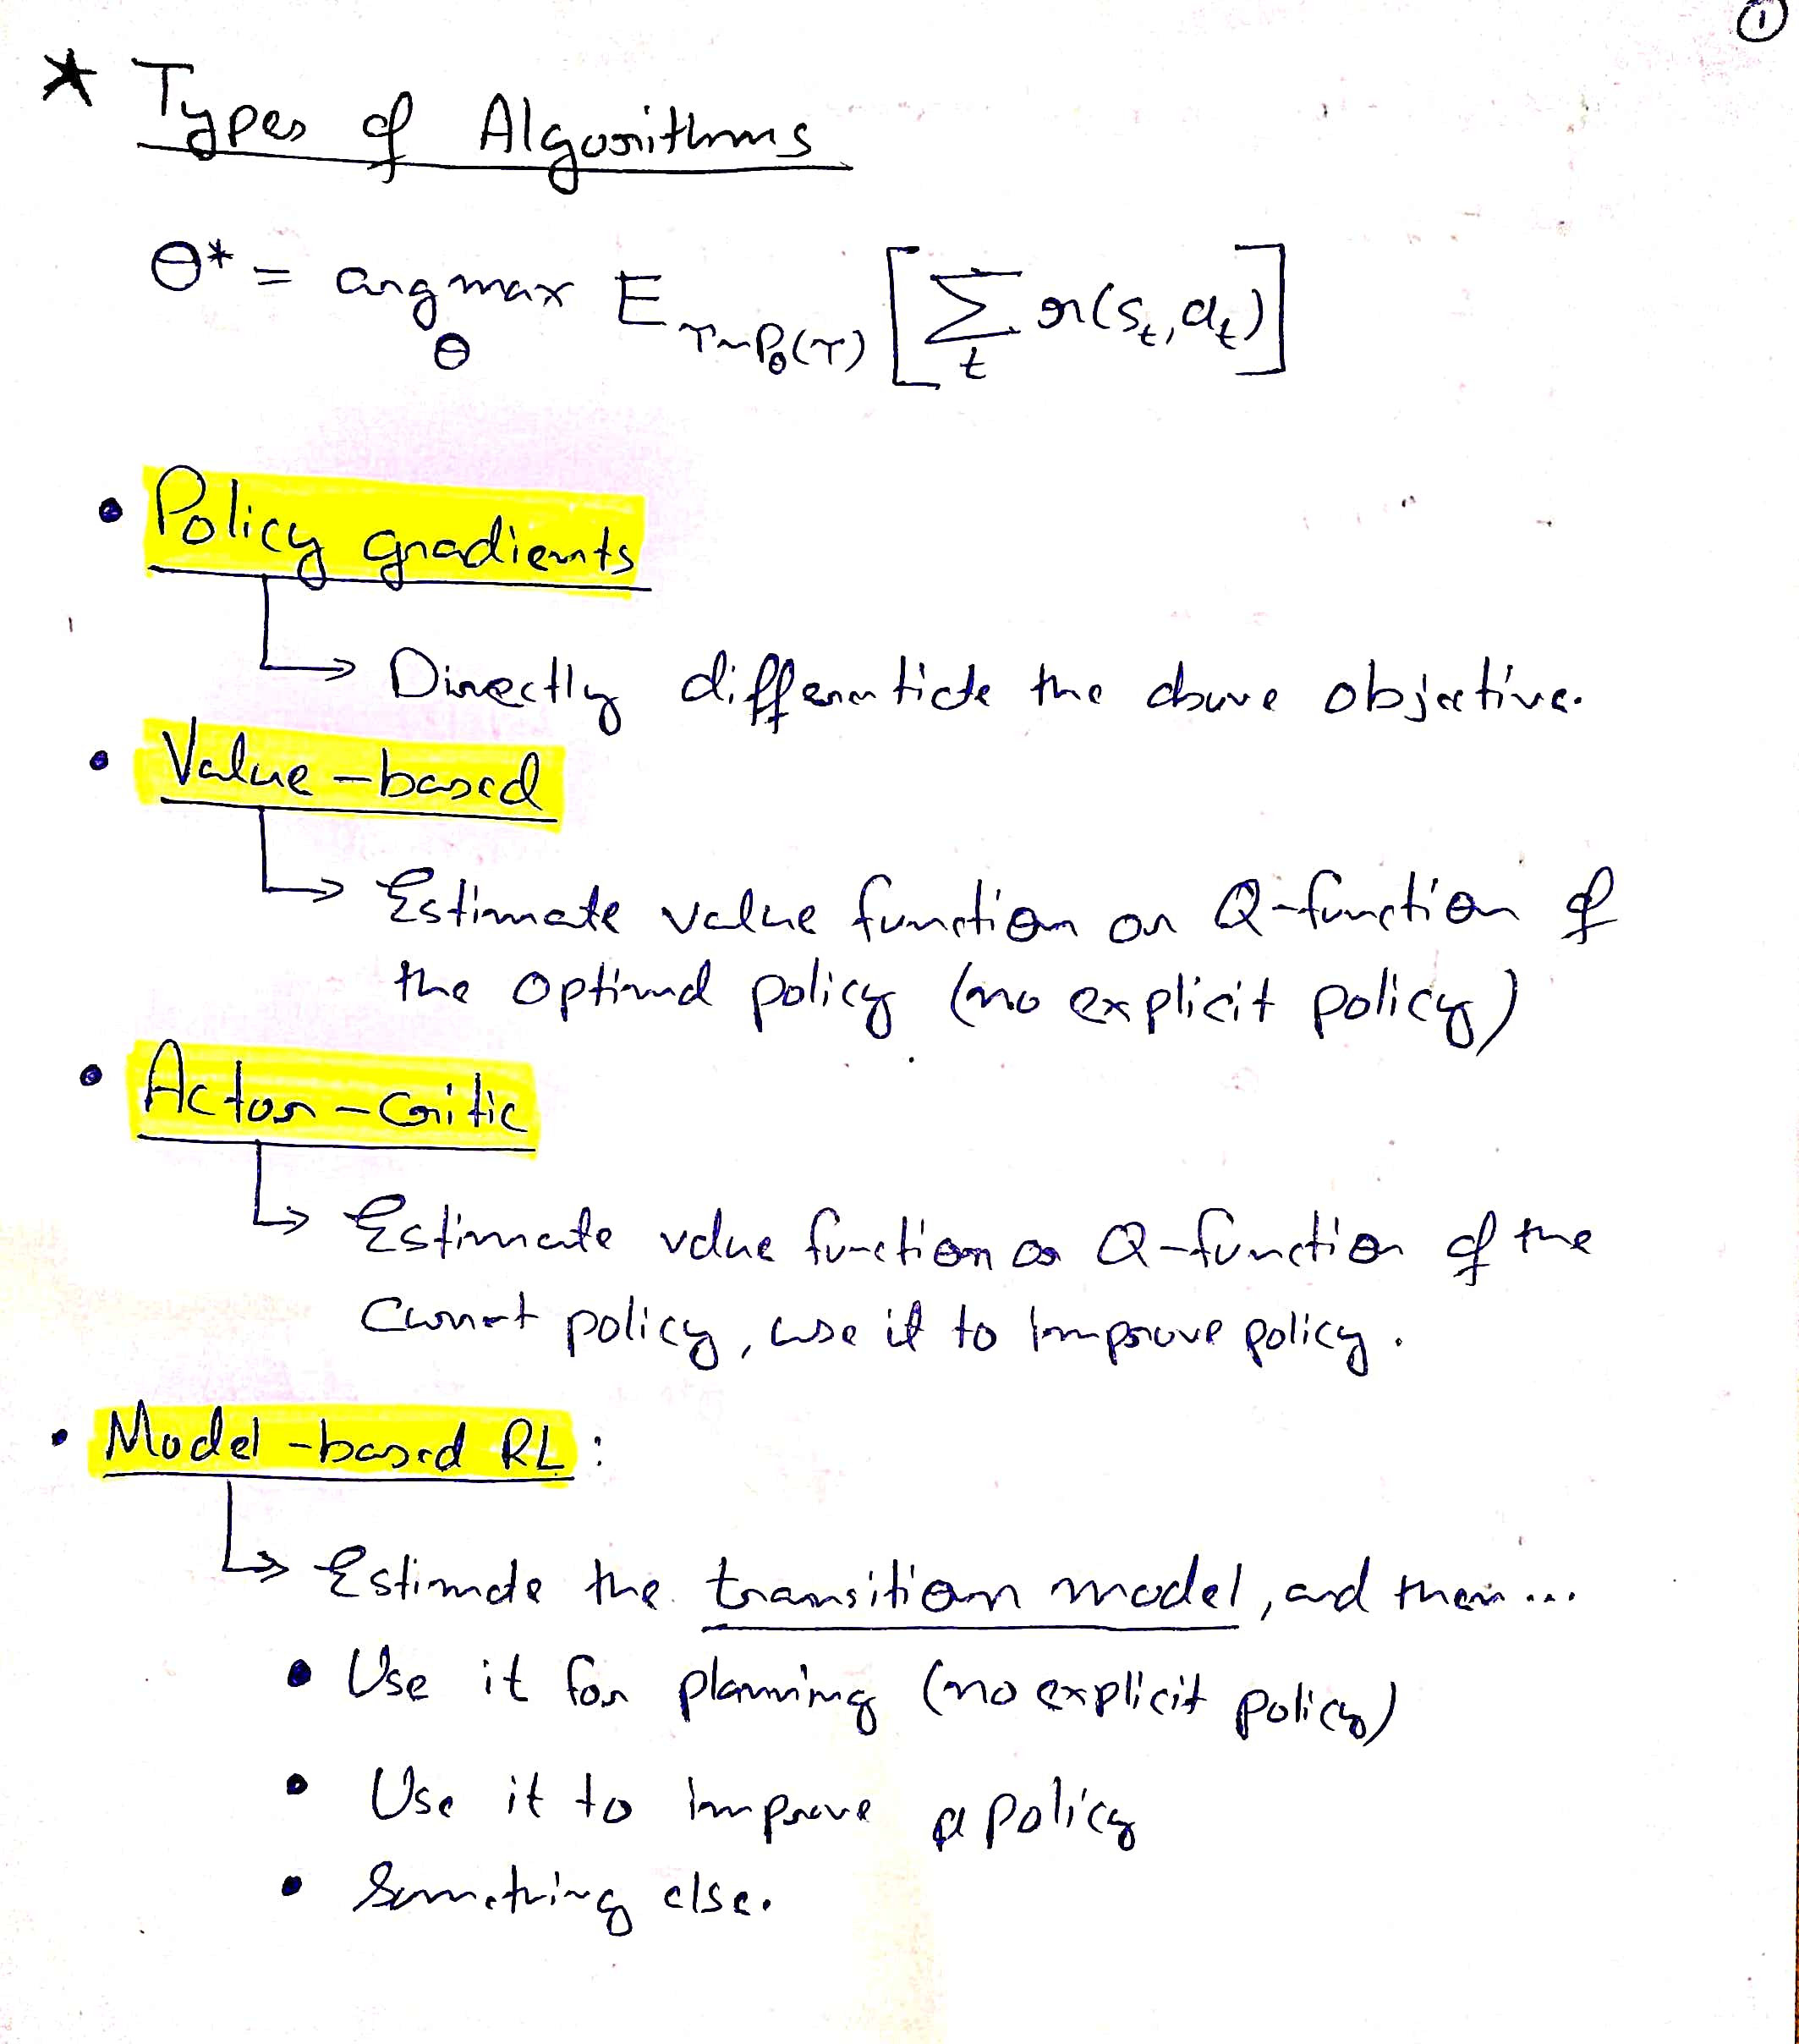 ①
* Types of Algorithms
θ* = argmax E τ~Pθ(τ) [ Σ r(st, at) ]
θ t
• Policy gradients
↳ Directly differentiate the above objective.
• Value-based
↳ Estimate value function or Q-function of
the optimal policy (no explicit policy)
• Actor-critic
↳ Estimate value function or Q-function of the
current policy, use it to improve policy.
• Model-based RL:
↳ Estimate the transition model, and then...
• Use it for planning (no explicit policy)
• Use it to improve a policy
• Something else.